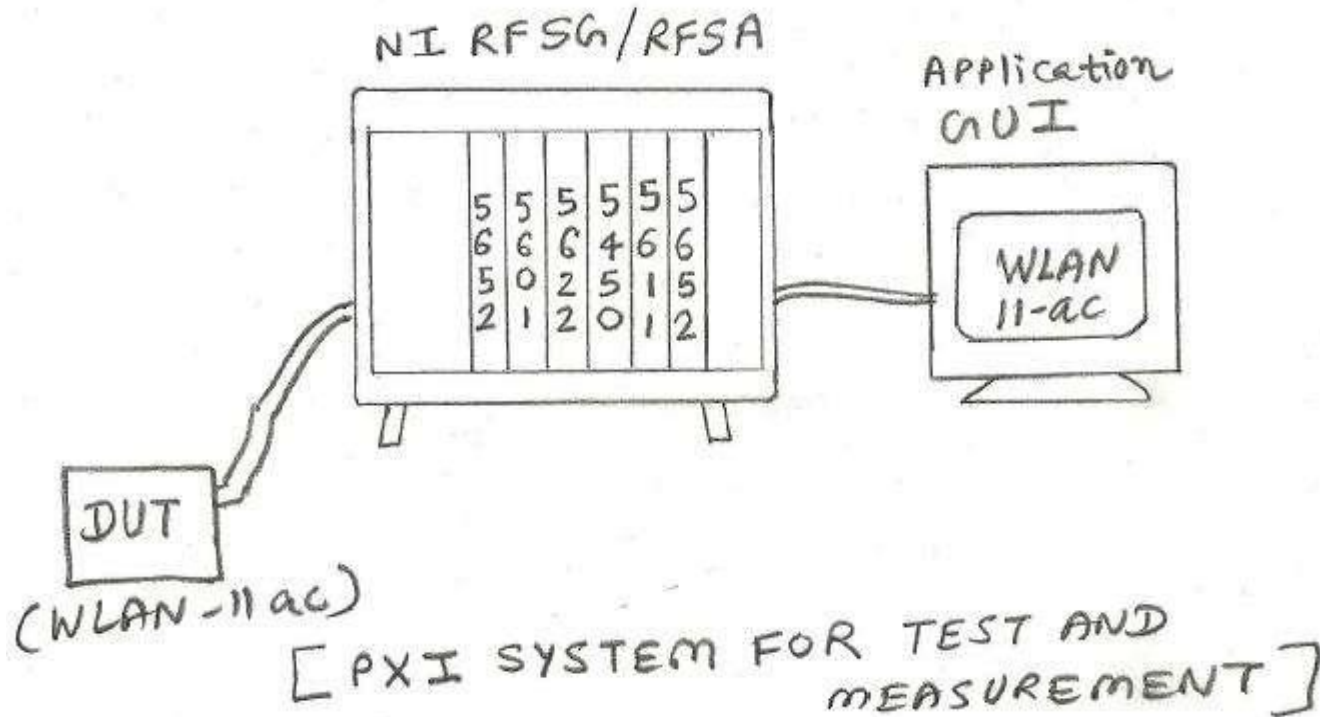 NI RFSG/RFSA
APPlication
GUI
5 5 5 5 5 5
6 6 6 4 6 6
5 0 2 5 1 5
2 1 2 0 1 2
WLAN
11-ac
DUT
(WLAN-11ac)
[PXI SYSTEM FOR TEST AND
MEASUREMENT]